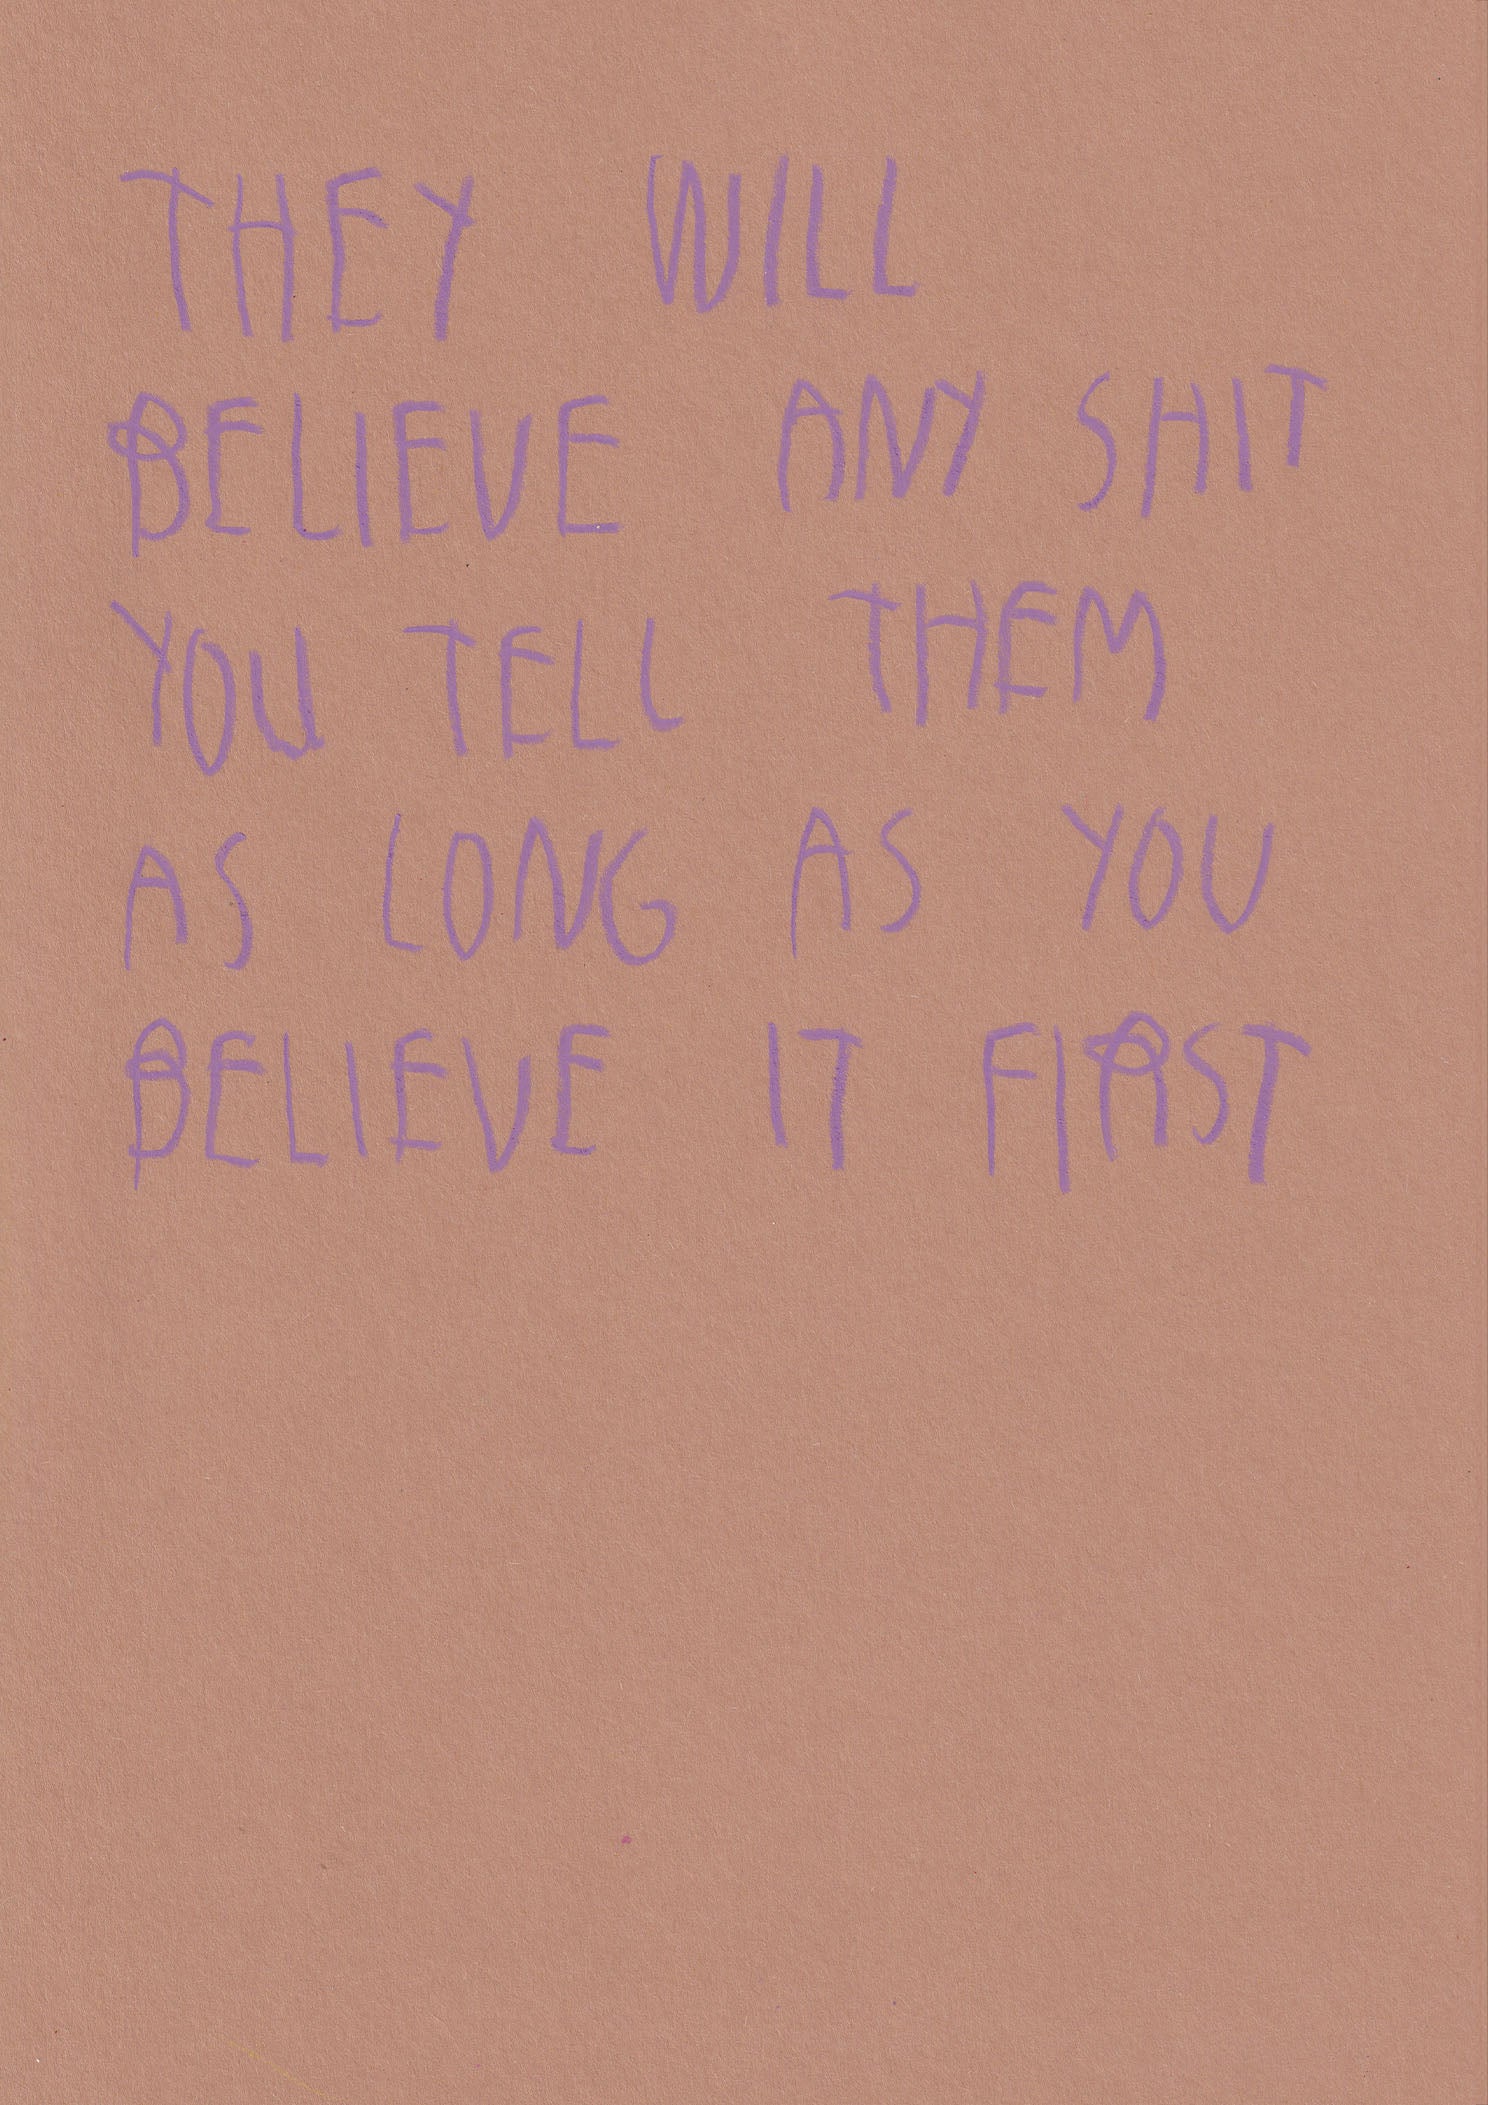 THEY WILL
BELIEVE ANY SHIT
YOU TELL THEM
AS LONG AS YOU
BELIEVE IT FIRST